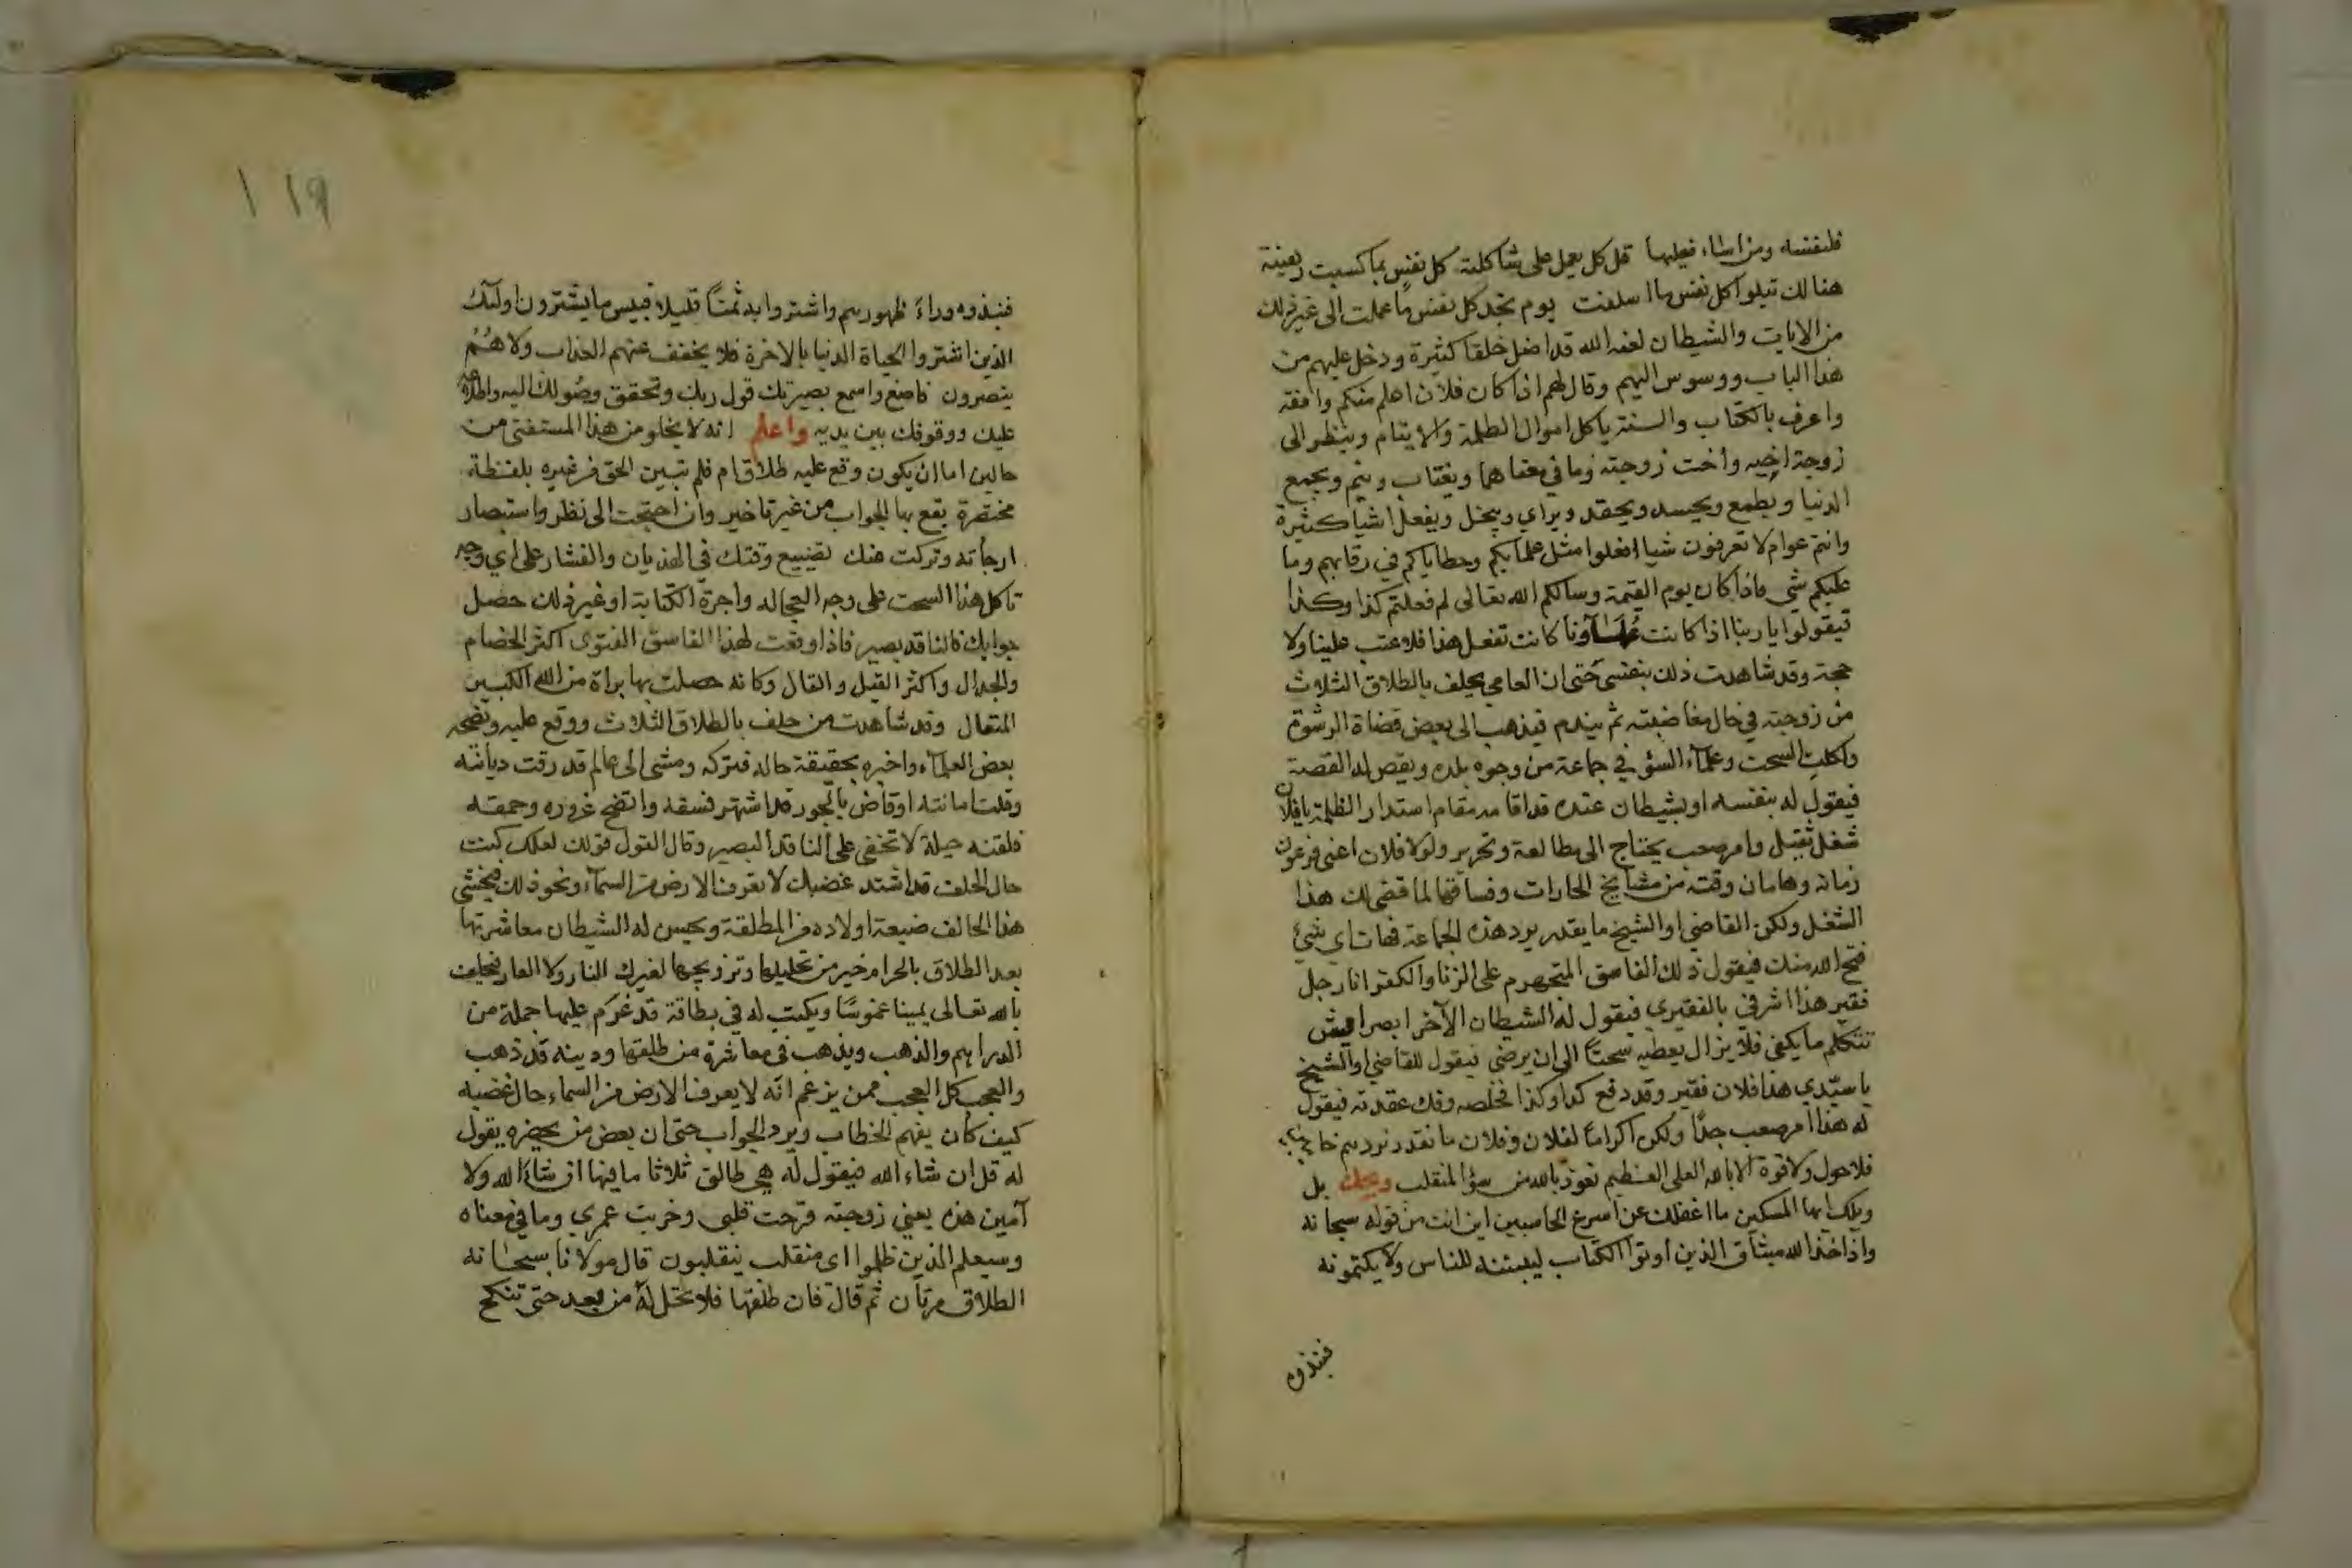 فلنفسه ومن اساء فعليها قل كل يعمل على شاكلته كل نفس بما كسبت رهينة
هنالك تبلوا كل نفس ما اسلفت يوم تجد كل نفس ما عملت الى غير ذلك
من الايات والشيطان لعنه الله قد اضل خلقا كثيرة ودخل عليهم من
هذا الباب ووسوس اليهم وقال لهم اذا كان فلان اعلم منكم وافقه
واعرف بالكتاب والسنة ياكل اموال الظلمة والايتام وينظر الى
زوجة اخيه واخت زوجته وما في معناهما ويغتاب وينم ويجمع
الدنيا ويطمع ويحسد ويحقد ويراي ويبخل ويفعل اشيا كثيرة
وانتم عوام لا تعرفون شيا افعلوا مثل علمايكم وخطاياكم في رقابهم وما
عليكم شي فاذا كان يوم القيمة وسالكم الله تعالى لم فعلتم كذا وكذا
فيقولوا يا ربنا اذا كانت علماؤنا كانت تفعل هذا فلا عتب علينا ولا
حجة وقد شاهدت ذلك بنفسي حتى ان العامي يحلف بالطلاق الثلاث
من زوجته في حال مغاضبته ثم يندم فيذهب الى بعض قضاة الرشوة
واكلت السحت وعلماء السؤ في جماعة من وجوه بلده ويقص له القصة
فيقول له بنفسه او بشيطان عنده قد اقامه مقام استدار الظلمة يا فلان
شغل ثقيل وامر صعب يحتاج الى مطالعة وتحرير ولولا فلان اعني فرعون
زمانه وهامان وقته من مشايخ الحارات وفساقها لما قضى لك هذا
الشغل ولكن القاضي او الشيخ ما يقدر يرد هذه الجماعة فهات اي شئ
فتح الله منك فيقول ذلك الفاسق المتجهرم على الزنا والكفر انا رجل
فقير هذا اشرفي بالفقيري فيقول له الشيطان الآخر ابصر ايش
تتكلم ما يكفي فلا يزال يعطيه سحتا الى ان يرضى فيقول للقاضي او الشيخ
يا سيدي هذا فلان فقير وقد دفع كذا وكذا فخلصه وفك عقدته فيقول
له هذا امر صعب جدا ولكن اكراما لفلان وفلان ما نقدر نردهم خايبين
فلا حول ولا قوة الا بالله العلي العظيم نعوذ بالله من سؤ المنقلب ويحك بل
ويلك ايها المسكين ما اغفلك عن اسرع الحاسبين اين انت من قوله سبحانه
واذ اخذ الله ميثاق الذين اوتوا الكتاب ليبيننه للناس ولا يكتمونه
فنبذوه
١١٩
فنبذوه وراء ظهورهم واشتروا به ثمنا قليلا فبيس ما يشترون اولئك
الذين اشتروا الحياة الدنيا بالاخرة فلا يخفف عنهم العذاب ولا هم
ينصرون فاصغ واسمع بصيرتك قول ربك وتحقق وصولك اليه واطلاعه
عليك ووقوفك بين يديه واعلم انه لا يخلو من هذا المستفتى من
حالين اما ان يكون وقع عليه طلاق ام فلم نبين الحق من غيره بلفظة
مختصرة يقع بها الجواب من غير تاخير وان احتجت الى نظر واستبصار
ارجأته وتركت عنك تضييع وقتك في الهذيان والفشار على اي وجه
تاكل هذا السحت على وجه العجاله واجرة الكتابة او غير ذلك حصل
جوابك فالناقد بصير فاذا وقعت لهذا الفاسق الفتوى اكثر الخصام
والجدال واكثر القيل والقال وكانه حصلت بها براة من الله الكبير
المتعال وقد شاهدت من حلف بالطلاق الثلاث ووقع عليه ونصحه
بعض العلماء واخبره بحقيقة حاله فتركه ومشى الى عالم قد رقت ديانته
وقلت امانته او قاض بالجور قد اشتهر فسقه واتضح غروره وحمقه
فلقنه حيلة لا تخفى على الناقد البصير وقال القول قولك لعلك كنت
حال الحلف قد اشتد غضبك لا تعرف الارض من السماء ونحو ذلك فيخشى
هذا الحالف ضيعة اولاده من المطلقة ويحسن له الشيطان معاشرتها
بعد الطلاق بالحرام خير من تحليلها وتزويجها لغيرك النار ولا العار فيحلف
بالله تعالى يمينا غموسا ويكتب له في بطاقة قد غرم عليها جملة من
الدراهم والذهب ويذهب في معاشرة من طلقها ودينه قد ذهب
والعجب كل العجب ممن يزعم انه لا يعرف الارض من السماء حال غضبه
كيف كان يفهم الخطاب ويرد الجواب حتى ان بعض من يحضره يقول
له قل ان شاء الله فيقول له هي طالق ثلاثا ما فيها ان شاء الله ولا
آمين هذه يعني زوجته قرحت قلبي وخربت عمري وما في معناه
وسيعلم الذين ظلموا اى منقلب ينقلبون قال مولانا سبحانه
الطلاق مرتان ثم قال فان طلقها فلا تحل له من بعد حتى تنكح